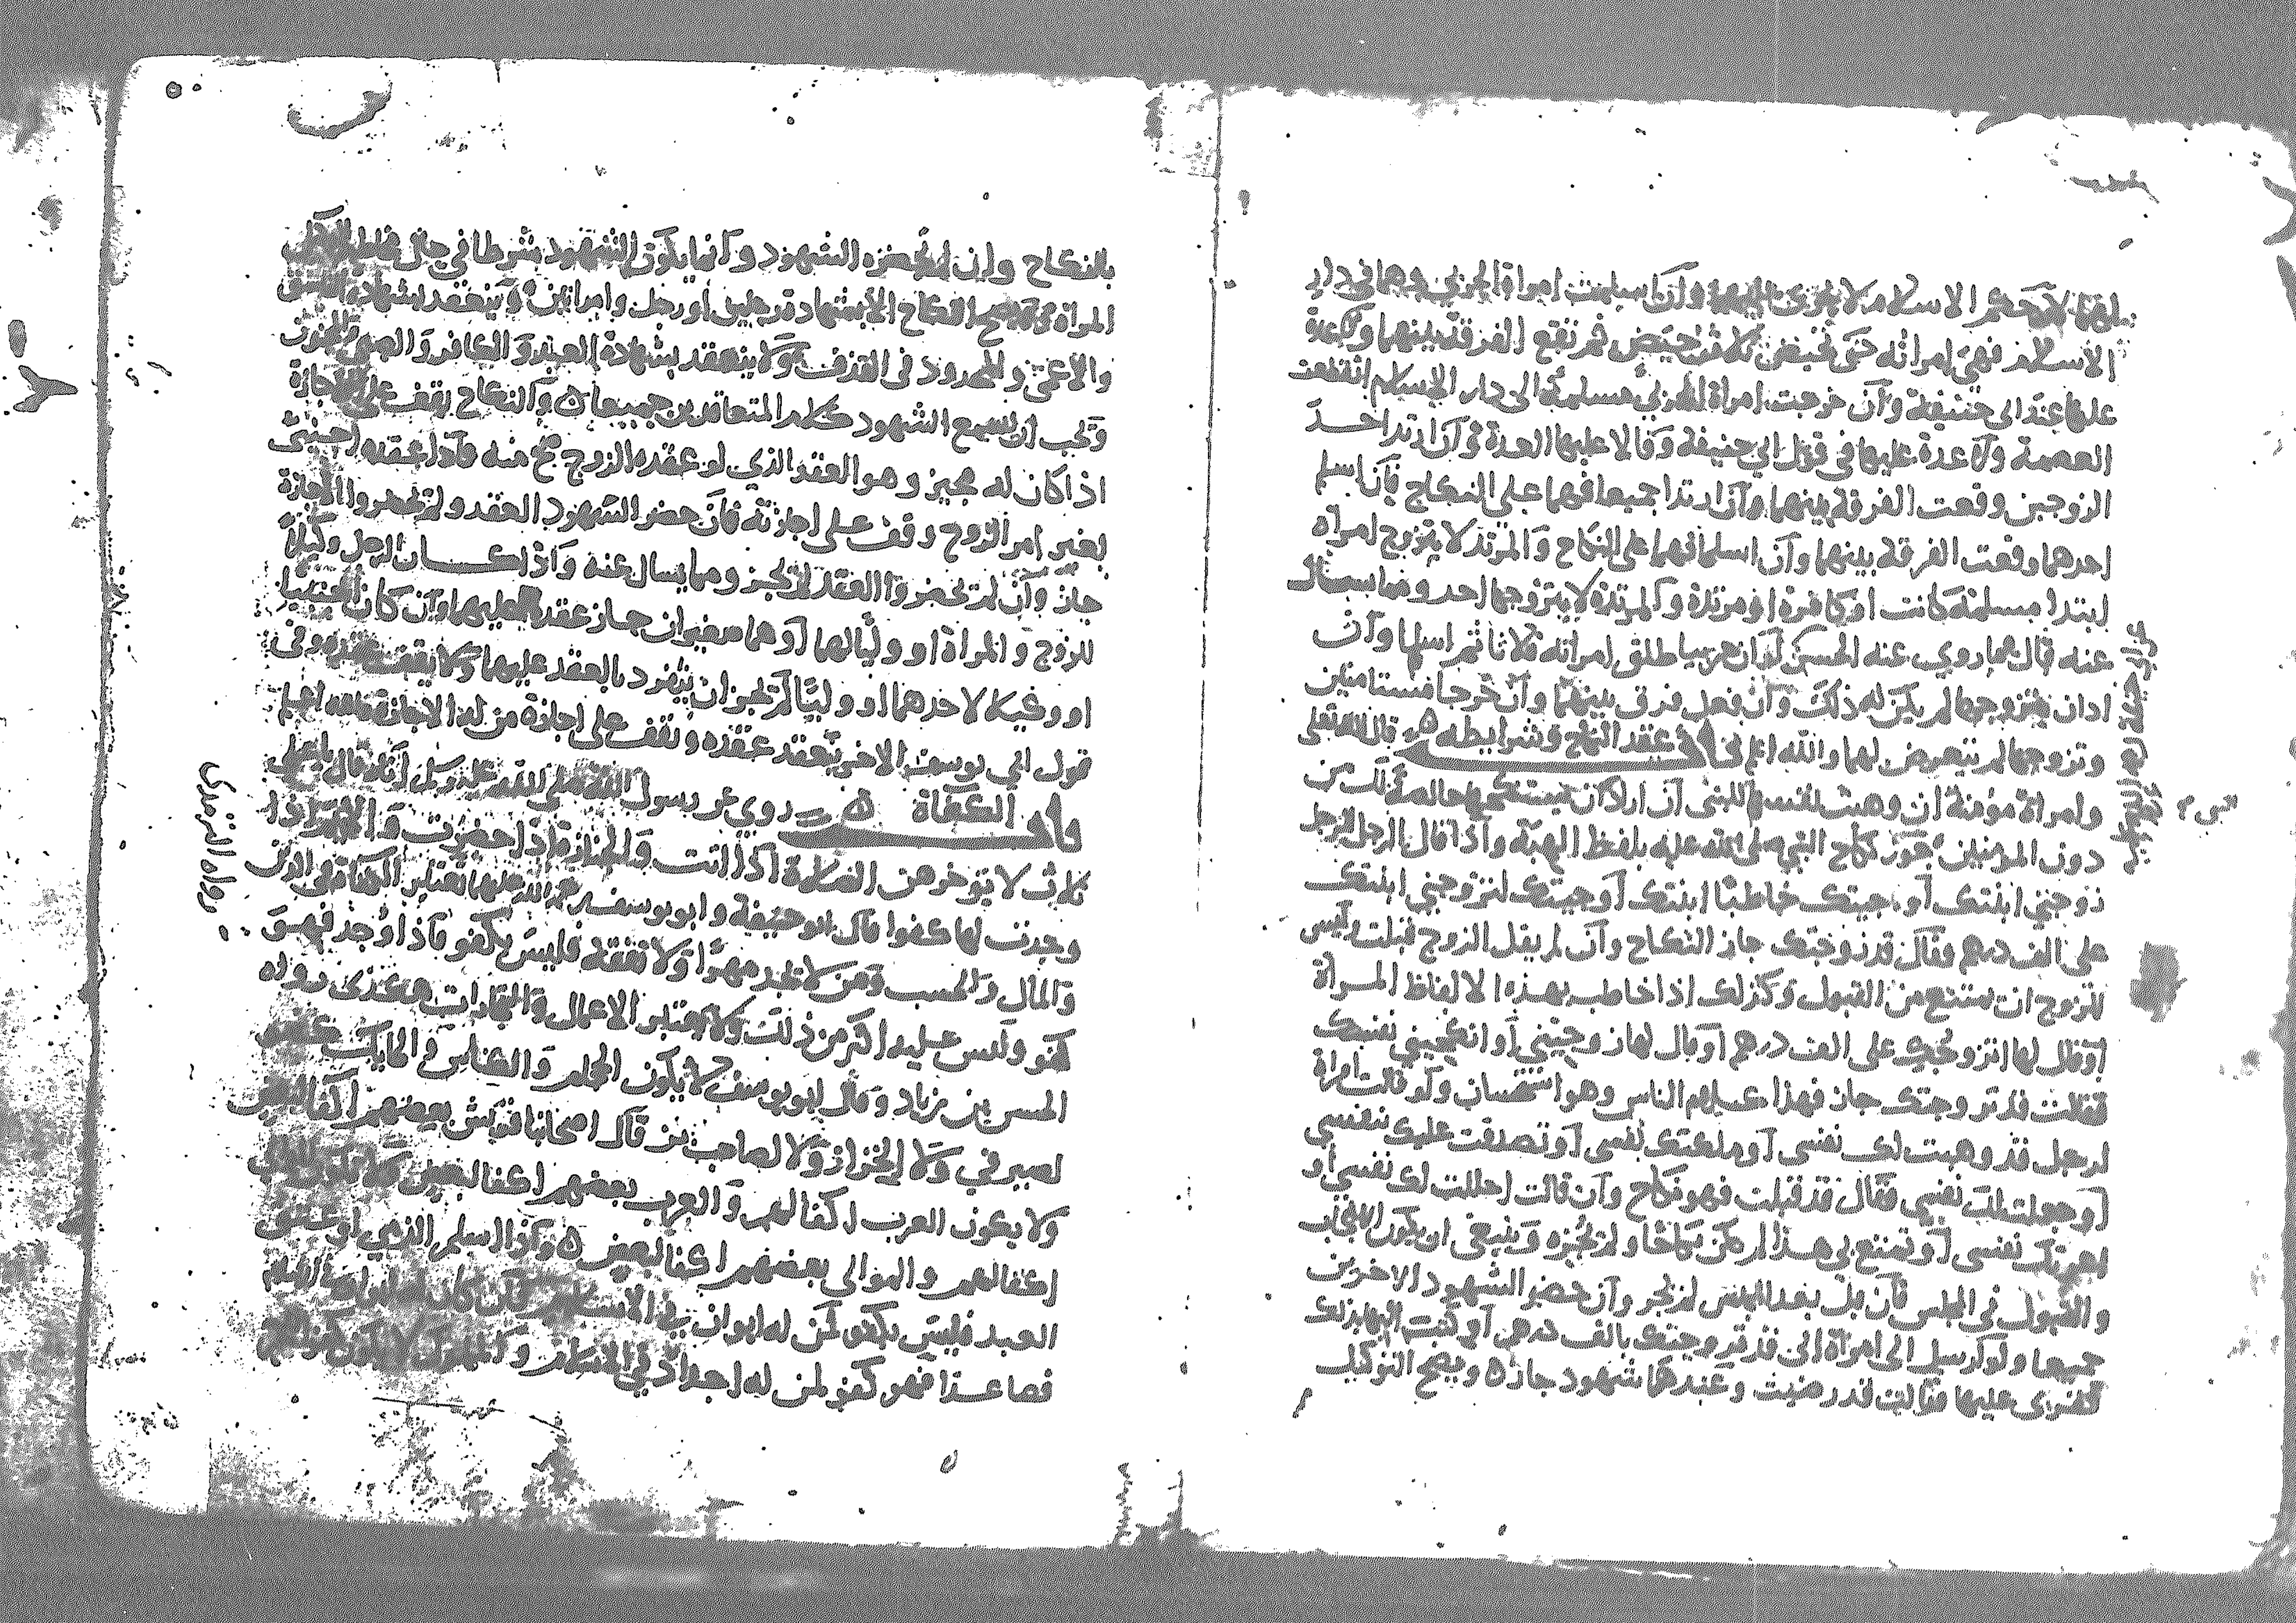 لان حكم الاسلام لا يجري عليهم وان اسلمت امراة الحربي وهما في دار
الاسلام فهي امراته حتى تحيض ثلاث حيض ثم تقع الفرقة بينهما ولا عدة
عليها عند ابي حنيفة وان خرجت امراة الحربي مسلمة الى دار الاسلام انقطعت
العصمة ولا عدة عليها في قول ابي حنيفة وقالا عليها العدة وان ارتد احد
الزوجين وقعت الفرقة بينهما وان ارتدا جميعا فهما على النكاح فان اسلم
احدهما وقعت الفرقة بينهما وان اسلما فهما على النكاح والمرتد لا يتزوج امراة
ابتدا مسلمة كانت او كافرة او مرتدة والمرتدة لا يتزوجها احد ومما يسال
عنه قال هما روي عنه الحسن لو ان حربيا طلق امراته ثلاثا ثم اسلما وان
اراد ان يتزوجها لم يكن له ذلك وان فعل فرق بينهما وان خرجا مستامنين
وتزوجها لم نتعرض لهما والله اعلم باب عقد النكاح وشرايطه قال الله تعلى
وامراة مؤمنة ان وهبت نفسها للنبي ان اراد النبي ان يستنكحها خالصة لك من
دون المومنين يجوز نكاح النبي صلى الله عليه بلفظ الهبة واذا قال الرجل للرجل
زوجني ابنتك او جيتك خاطبا ابنتك او جيتك لتزوجني ابنتك
على الف درهم فقال قد زوجتك جاز النكاح وان لم يقل الزوج قبلت وليس
للزوج ان يمتنع من القبول وكذلك اذا خاطب بهذه الالفاظ المراة
او قال لها اتزوجك على الف درهم او قال لها زوجيني او انكحيني نفسك
فقالت قد تزوجتك جاز فهذا عليهم الناس وهو استحسان ولو قالت امراة
لرجل قد وهبت لك نفسي او ملكتك نفسي او تصدقت عليك بنفسي
او جعلت لك نفسي فقال قد قبلت فهو نكاح وان قالت احللت لك نفسي او
اعرتك نفسي او تمتع بي هذا لم يكن نكاحا ولم تجزه وينبغي ان يكون الايجاب
والقبول في المجلس فان قبل بعد المجلس لم يجز وان حضر الشهود الاخرين
جميعا ولو ارسل الى امراة اني قد تزوجتك بالف درهم او كتب اليها بذلك
فقرى عليها فقالت قد رضيت وعندها شهود جاز ويصح التوكيل
بالنكاح وان لم يحضره الشهود وانما يكون الشهود شرطا في حال
المراة ولا يصح النكاح الا بشهادة رجلين او رجل وامراتين وينعقد بشهادة الفاسق
والاعمى والمحدود في القذف ولا ينعقد بشهادة العبد والكافر والصبي والمجنون
ويجب ان يسمع الشهود كلام المتعاقدين جميعا والنكاح يقف على الاجازة
اذا كان له مجيز وهو العقد الذي لو عقده الزوج صح منه فاذا عقده اجنبي
بغير امر الزوج وقف على اجازته فان حضر الشهود العقد ولم يحضروا الاجازة
جاز وان لم يحضروا العقد لم يجز ومما يسال عنه واذا كان الرجل وكيلا
للزوج والمراة او وليا لهما او هما صغيران جاز عقده عليهما وان كان اجنبيا
او وكيلا لاحدهما او وليا لم يجز ان ينفرد بالعقد عليهما ولا يقف عقده وفي
قول ابي يوسف الاخر ينعقد عقده ويقف على اجازة من له الاجازة والله اعلم
باب الكفاة روي عن رسول الله صلى الله عليه وسلم انه قال يا علي
ثلاث لا يتوخرهن الصلاة اذا اتت والجنازة اذا حضرت والايم اذا
وجدت لها كفوا قال ابو حنيفة وابو يوسف رحمة الله عليهما تعتبر الكفاة في الدين
والمال والحسب ومن لا يجد مهرا ولا نفقة فليس بكفو فاذا وجد فهو
كفو وليس عليه اكثر من ذلك ولا يعتبر الاعمال والتجارات هكذى رواه
الحسن بن زياد وقال ابو يوسف لا يكون الحجام والكناس والحايك كفو
لصيرفي ولا الخزاز ولا لصاحب بز قال اصحابنا قريش بعضهم اكفا لبعض
ولا يكون العرب اكفا لهم والعرب بعضهم اكفا لبعض
اكفا لهم والموالي بعضهم اكفا لبعض واذا اسلم الذمي او عتق
العبد فليس بكفو لمن له ابوان في الاسلام
فصاعدا فهو كفو لمن له اجداد في الاسلام والمملوك لا يكون كفوا
رواه الترمذى